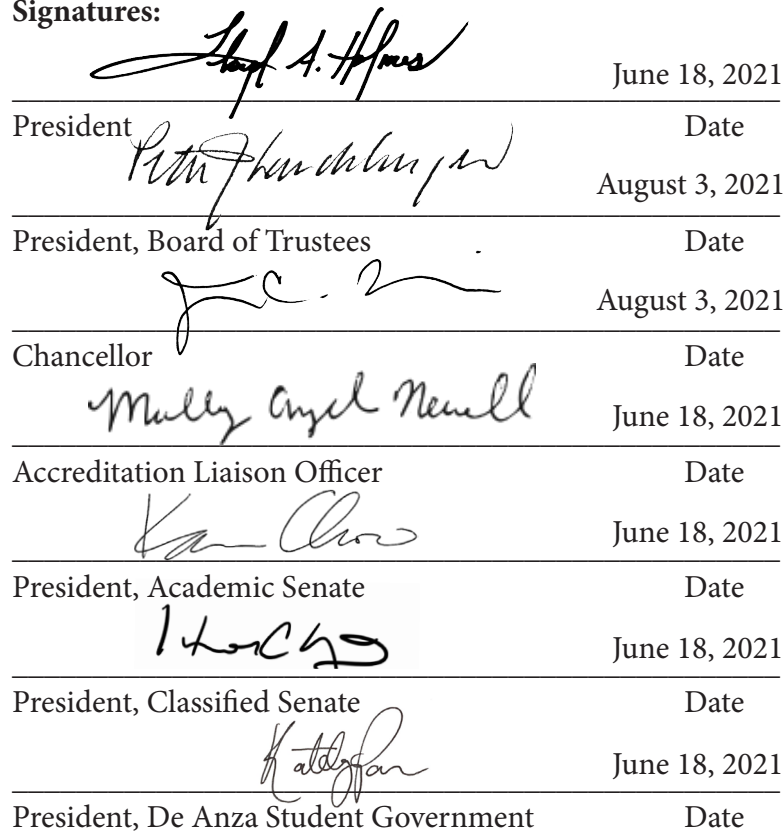 Signatures:
Lloyd A. Holmes
June 18, 2021
President Date
Peter
August 3, 2021
President, Board of Trustees Date
C.
August 3, 2021
Chancellor Date
Mallory Newell
June 18, 2021
Accreditation Liaison Officer Date
Karen Chow
June 18, 2021
President, Academic Senate Date
June 18, 2021
President, Classified Senate Date
June 18, 2021
President, De Anza Student Government Date